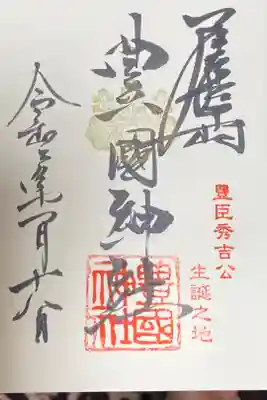 豐臣秀吉公
生誕之地
豊國神社
豊國
神社
令和
月十八日